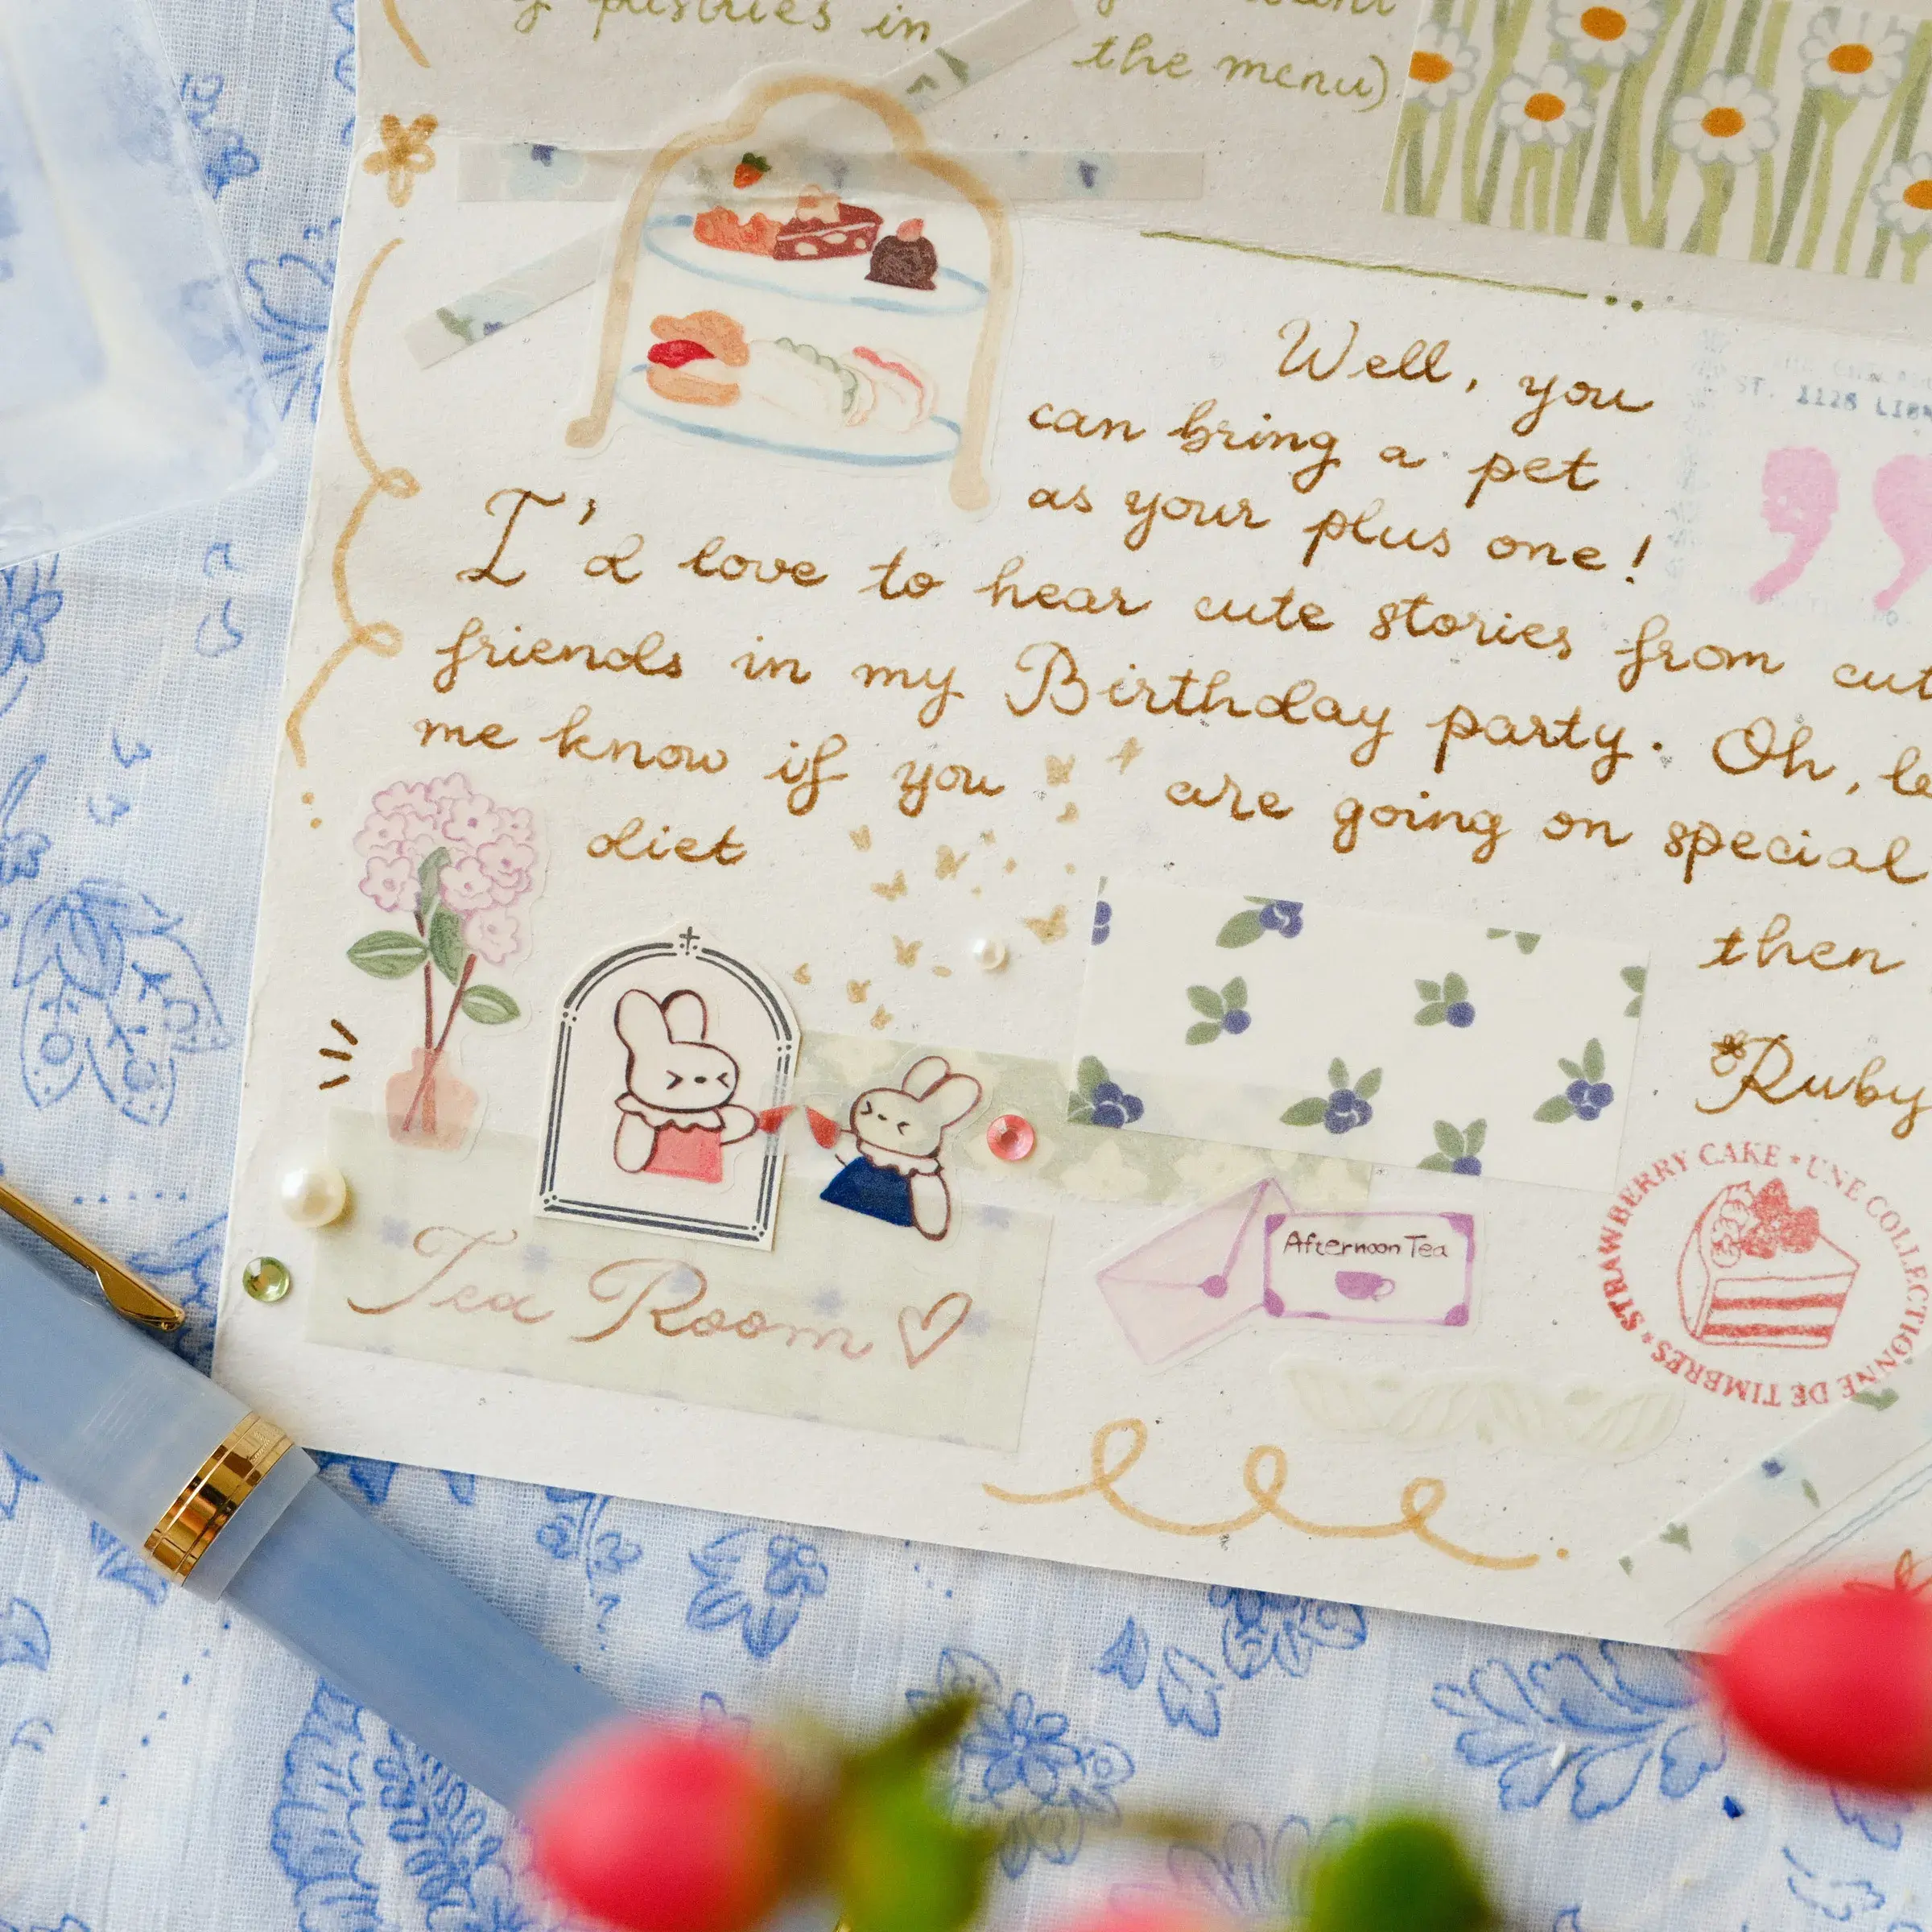 pastries in
the menu)
Well, you
can bring a pet
as your plus one!
I'd love to hear cute stories from
friends in my Birthday party. Oh,
me know if you are going on special
diet
then
Ruby
Tea Room
Afternoon Tea
STRAWBERRY CAKE * UNE COLLECTIONNE DE TIMBRES *
ST. 1128